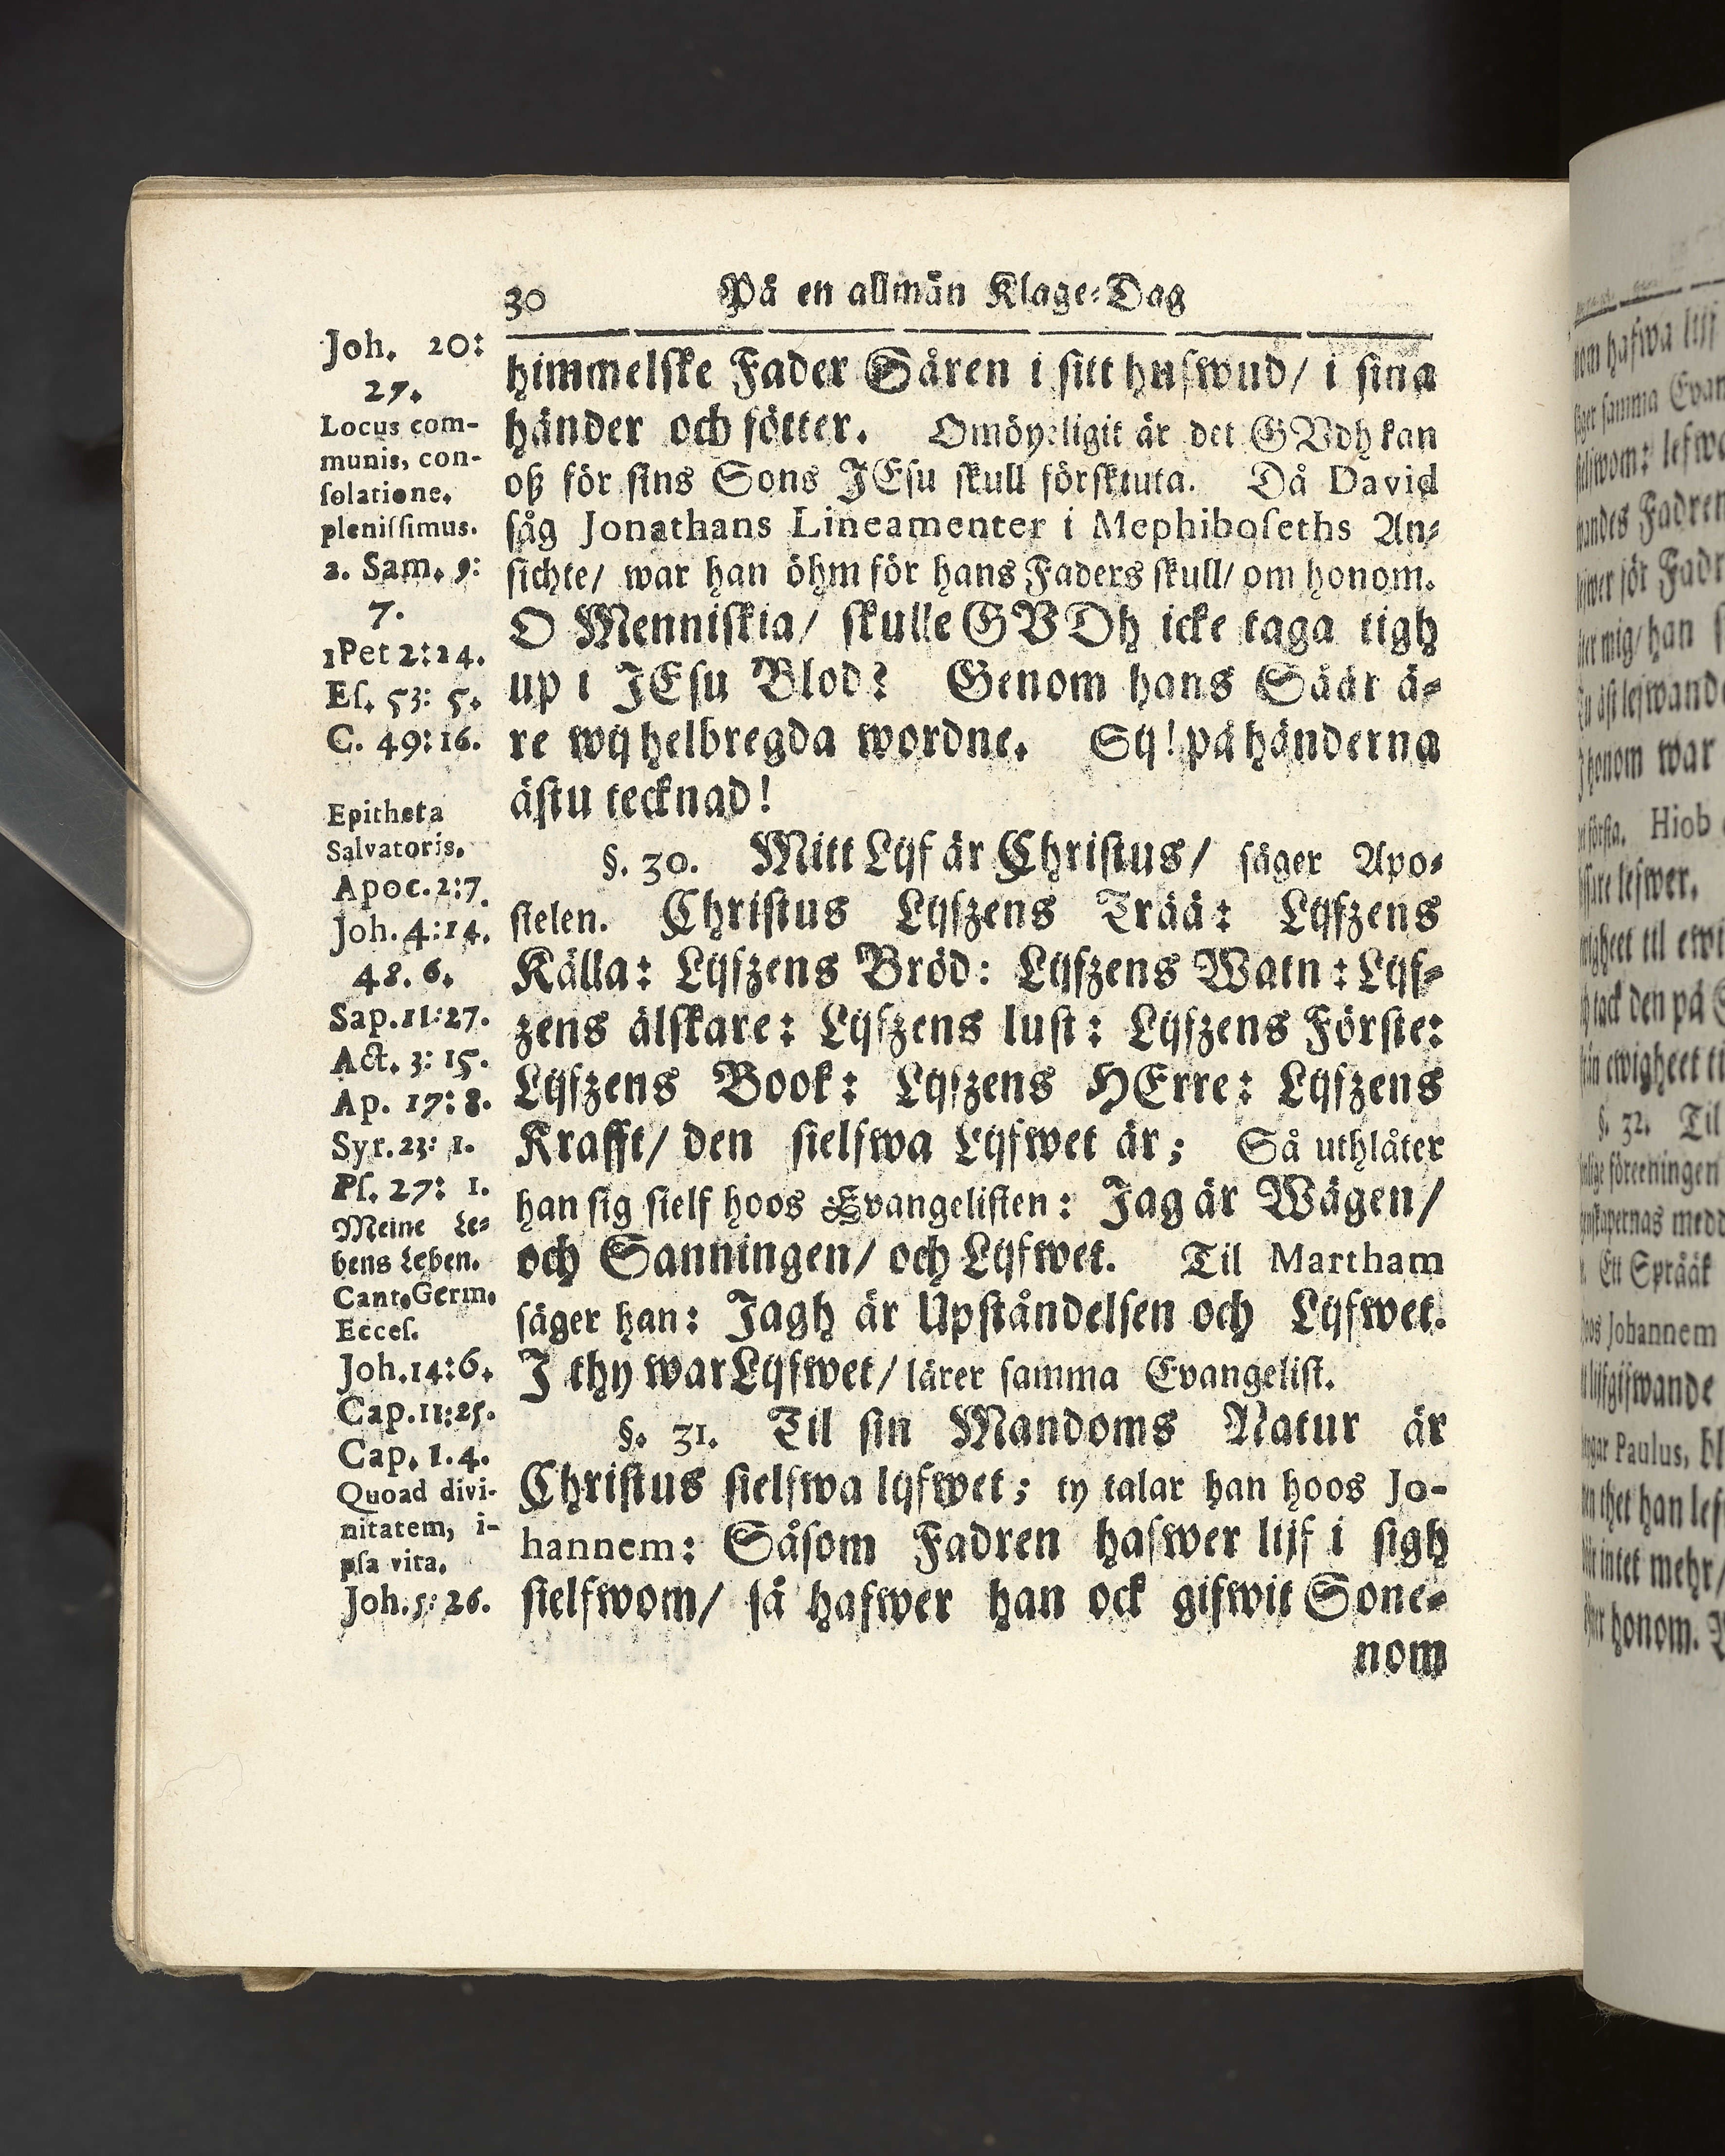 30 På en allmän Klage-Dag
himmelske Fader Såren i sitt hufwud/ i sina
händer och fötter. Omöyeligit är det GVdh kan
oß för sins Sons JEsu skull förskiuta. Då David
såg Jonathans Lineamenter i Mephiboseths An-
sichte/ war han öhm för hans Faders skull/ om honom.
O Menniskia/ skulle GVDh icke taga tigh
up i JEsu Blod? Genom hans Såår ä-
re wij helbregda wordne. Sij! på händerna
ästu tecknad!
§. 30. Mitt Lijf är Christus/ säger Apo-
stelen. Christus Lijfzens Trää: Lijfzens
Källa: Lijfzens Bröd: Lijfzens Watn: Lijf-
zens älskare: Lijfzens lust: Lijfzens Förste:
Lijfzens Book: Lijfzens HErre: Lijfzens
Krafft/ den sielfwa Lijfwet är; Så uthlåter
han sig sielf hoos Evangelisten: Jag är Wägen/
och Sanningen/ och Lijfwet. Til Martham
säger han: Jagh är Upståndelsen och Lijfwet.
J thy war Lijfwet/ lärer samma Evangelist.
§. 31. Til sin Mandoms Natur är
Christus sielfwa lijfwet; ty talar han hoos Jo-
hannem: Såsom Fadren hafwer lijf i sigh
sielfwom/ så hafwer han ock gifwit Sone-
nom
Joh. 20:
27.
Locus com-
munis, con-
solatione,
plenissimus.
2. Sam. 9:
7.
1Pet 2:24.
Es. 53: 5.
C. 49:16.
Epitheta
Salvatoris.
Apoc. 2:7.
Joh. 4:14.
48. 6.
Sap. 11:27.
Act. 3: 15.
Ap. 17: 8.
Syr. 23: 1.
Ps. 27: 1.
Meine Le-
bens Leben.
Cant. Germ.
Ecces.
Joh. 14:6.
Cap. 11:25.
Cap. 1.4.
Quoad divi-
nitatem, i-
psa vita.
Joh. 5: 26.